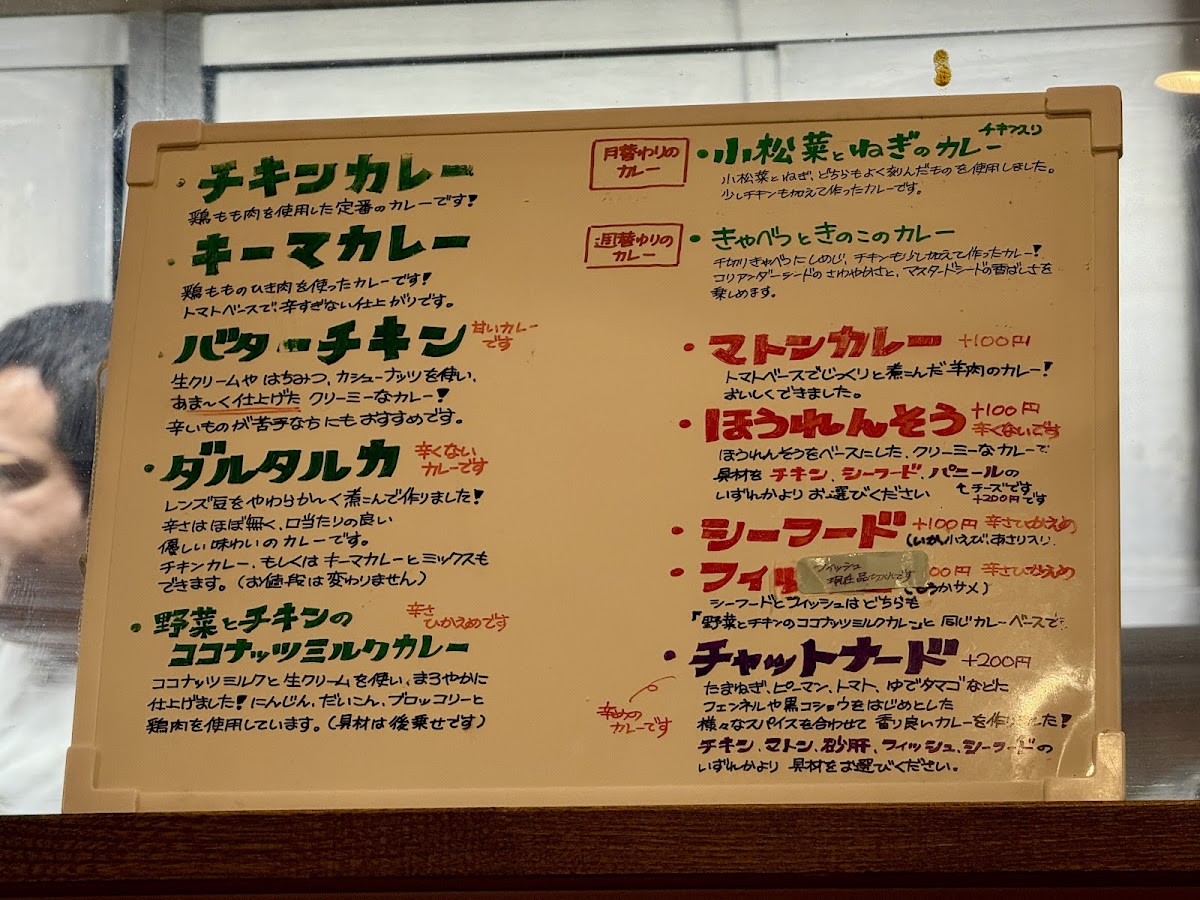 チキンカレー
鶏もも肉を使用した定番のカレーです!
キーマカレー
鶏もものひき肉を使ったカレーです!
トマトベースで、辛すぎない仕上がりです。
バターチキン 甘いカレー
です
生クリームや はちみつ、カシューナッツを使い、
あま〜く仕上げた クリーミーなカレー!
辛いものが苦手な方にもおすすめです。
ダルタルカ 辛くない
カレーです
レンズ豆をやわらかく煮こんで作りました!
辛さはほぼ無く、口当たりの良い
優しい味わいのカレーです。
チキンカレー、もしくは キーマカレーとミックスも
できます。(お値段は変わりません)
野菜とチキンの
ココナッツミルクカレー
辛さ
ひかえめです
ココナッツミルクと生クリームを使い、まろやかに
仕上げました! にんじん、だいこん、ブロッコリーと
鶏肉を使用しています。(具材は後乗せです)
月替わりの
カレー
小松菜とねぎのカレー チキン入り
小松菜とねぎ、どちらもよく刻んだものを使用しました。
少しチキンも加えて作ったカレーです。
週替わりの
カレー
きゃべつときのこのカレー
千切りきゃべつにしめじ、チキンも少し加えて作ったカレー!
コリアンダーシードのさわやかさと、マスタードシードの香ばしさを
楽しめます。
マトンカレー +100円
トマトベースでじっくりと煮こんだ羊肉のカレー!
おいしくできました。
ほうれんそう +100円
辛くないです
ほうれんそうをベースにした、クリーミーなカレーで
具材を チキン、シーフード、パニールの
いずれかより お選びください
チーズです
+200円です
シーフード +100円 辛さひかえめ
(いか、小えび、あさり入り)
フィッ 00円 辛さひかえめ
フィッシュ
現在品切れです
カサメ)
シーフードとフィッシュは どちらも
「野菜とチキンのココナッツミルクカレー」と 同じカレーベースで
チャットナード +200円
辛めの
カレーです
たまねぎ、ピーマン、トマト、ゆでタマゴなどに
フェンネルや黒コショウをはじめとした
様々なスパイスを合わせて 香り良いカレーを作りました!
チキン、マトン、砂肝、フィッシュ、シーフードの
いずれかより 具材をお選びください。